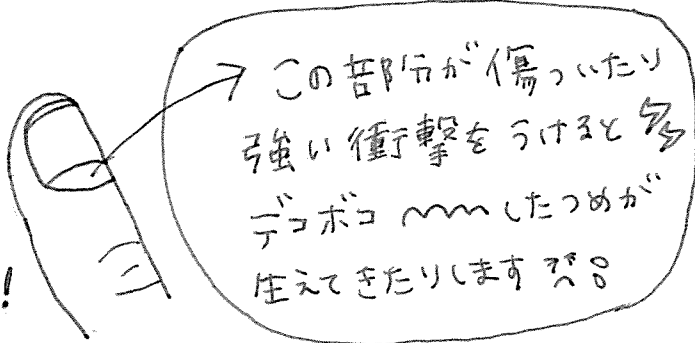 この部分が傷ついたり
強い衝撃をうけると
デコボコ〰〰したつめが
生えてきたりします
!